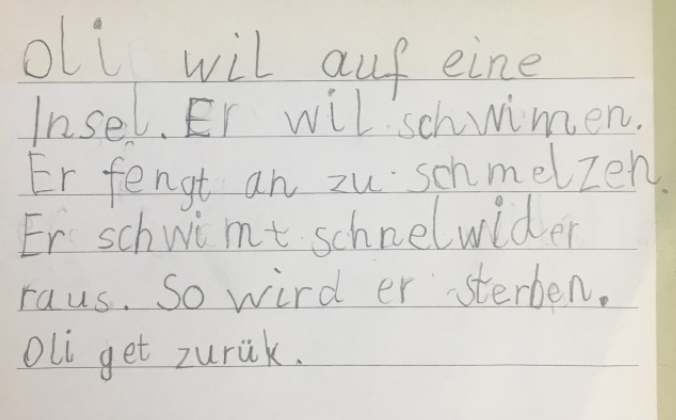 Oli wil auf eine
Insel. Er wil schwimen.
Er fengt an zu schmelzen.
Er schwimt schnel wider
raus. So wird er sterben.
Oli get zurük.